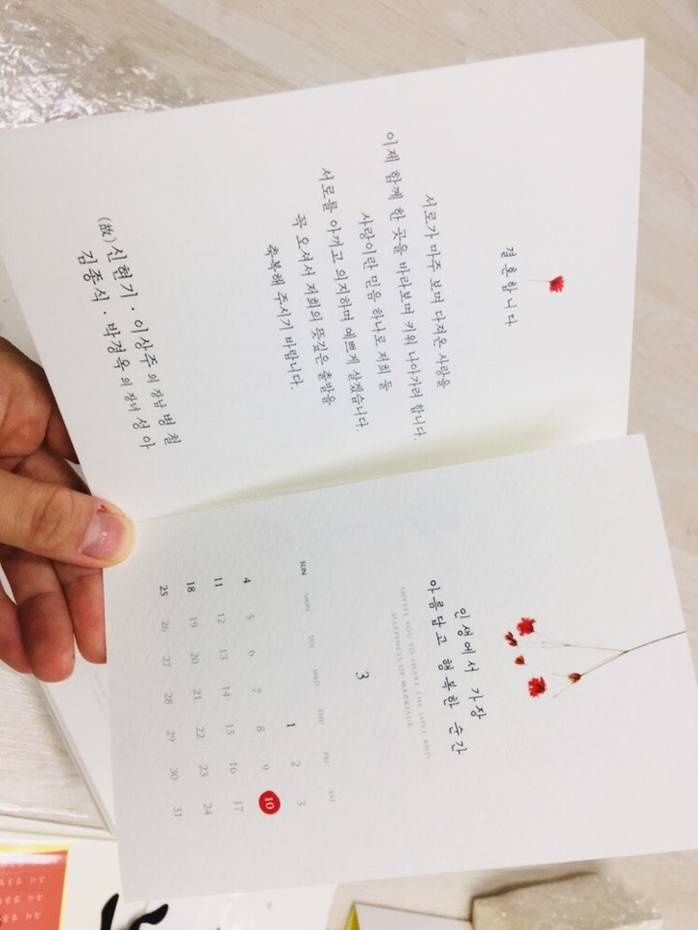 결혼합니다
서로가 마주 보며 다져온 사랑을
이제 함께 한 곳을 바라보며 키워 나아가려 합니다.
사랑이란 믿음 하나로 저희 둘
서로를 아끼고 의지하며 예쁘게 살겠습니다.
꼭 오셔서 저희의 뜻깊은 출발을
축복해 주시기 바랍니다.
(故)신현기 · 이상주 의 장남 병철
김종식 · 박경옥 의 장녀 성아
인생에서 가장
아름답고 행복한 순간
INVITE YOU TO SHARE THE LOVE AND
HAPPINESS OF MARRIAGE
3
SUN MON TUE WED THU FRI SAT
1 2 3
4 5 6 7 8 9 10
11 12 13 14 15 16 17
18 19 20 21 22 23 24
25 26 27 28 29 30 31